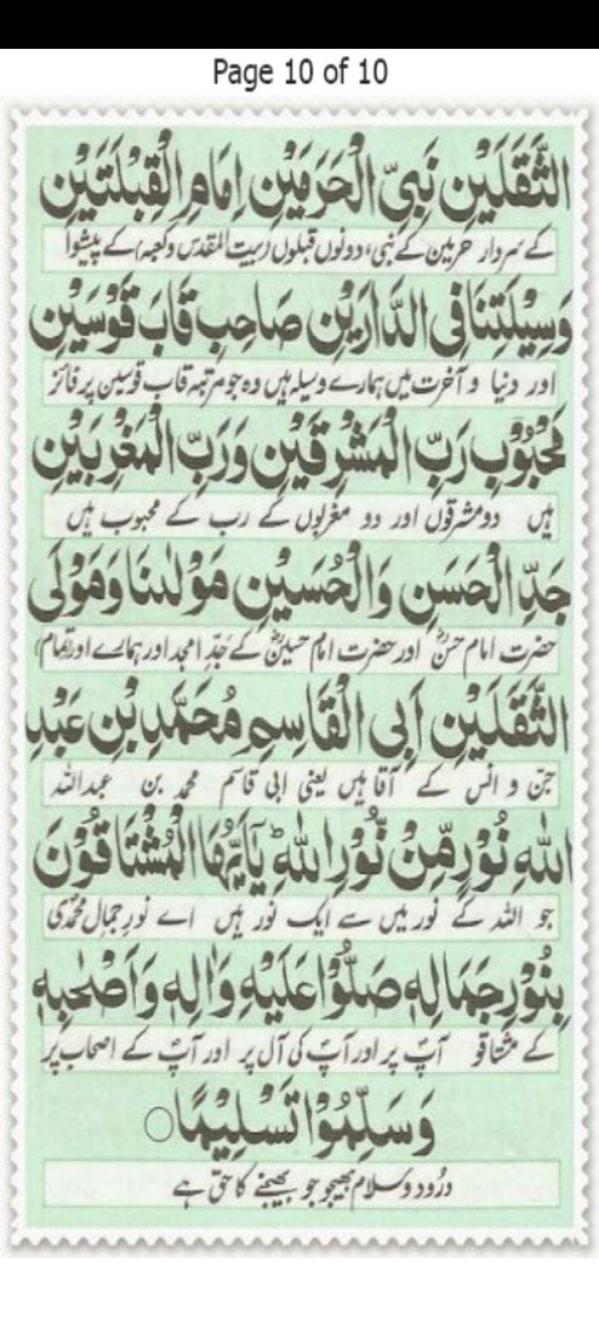 Page 10 of 10
الثَّقَلَيْنِ نَبِيِّ الْحَرَمَيْنِ اِمَامِ الْقِبْلَتَيْنِ
کے سردار حرمین کے نبی، دونوں قبلوں (بیت المقدس و کعبہ) کے پیشوا
وَسِيْلَتِنَا فِي الدَّارَيْنِ صَاحِبِ قَابَ قَوْسَيْنِ
اور دنیا و آخرت میں ہمارے وسیلہ ہیں وہ جو مرتبہ قاب قوسین پر فائز
مَحْبُوْبِ رَبِّ الْمَشْرِقَيْنِ وَرَبِّ الْمَغْرِبَيْنِ
ہیں دو مشرقوں اور دو مغربوں کے رب کے محبوب ہیں
جَدِّ الْحَسَنِ وَالْحُسَيْنِ مَوْلٰىنَا وَمَوْلَى
حضرت امام حسنؓ اور حضرت امام حسینؓ کے جدِّ امجد اور ہمارے اور (تمام)
الثَّقَلَيْنِ اَبِي الْقَاسِمِ مُحَمَّدِ بْنِ عَبْدِ
جنّ و انس کے آقا ہیں یعنی ابی قاسم محمد بن عبداللہ
اللهِ نُوْرٍ مِّنْ نُّوْرِ اللهِ ؕ يٰۤاَيُّهَا الْمُشْتَاقُوْنَ
جو اللہ کے نور میں سے ایک نور ہیں اے نورِ جمالِ محمدؐی
بِنُوْرِ جَمَالِهٖ صَلُّوْا عَلَيْهِ وَاٰلِهٖ وَاَصْحٰبِهٖ
کے مشتاقو آپؐ پر اور آپؐ کی آل پر اور آپؐ کے اصحاب پر
وَسَلِّمُوْا تَسْلِيْمًا ○
درُود و سلام بھیجو جو بھیجنے کا حق ہے